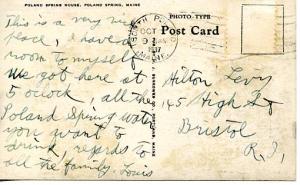 POLAND SPRING HOUSE, POLAND SPRING, MAINE
PHOTO-TYPE
Post Card
OCT
9
MAINE
This is a very nice
place, I have a
room to myself
We got here at
5 oclock, all the
Poland Spring water
you want to
drink, regards to
all the family. Louis
Hilton Levy
145 High St
Bristol
R.I.